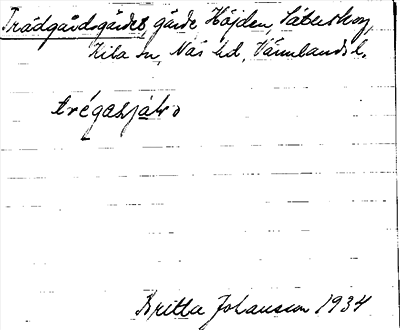 Trädgårdsgärdet, gärde, Höjden, Säterskog,
Kila sn, Näs hd, Värmlands l.
trégaṣjælɐ
Britta Johansson 1934